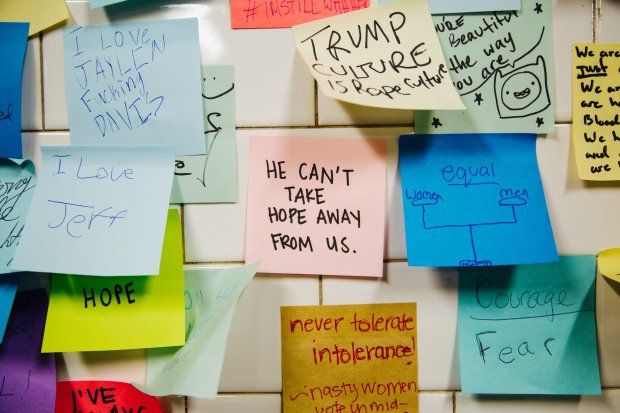 #INSTILLWITHHOPE
I LOVE
JAYLEN
Fucking
DAVIS
TRUMP
CULTURE
IS Rape Culture
YOU'RE Beautiful
the way
you are
We are
Just
We a
we h
Blood
We h
and
are
I Love
Jeff
HE CAN'T
TAKE
HOPE AWAY
FROM US.
equal
Women men
HOPE
YOU ARE
never tolerate
intolerance!
~nasty women
vote in mid-
Courage
Fear
I'VE